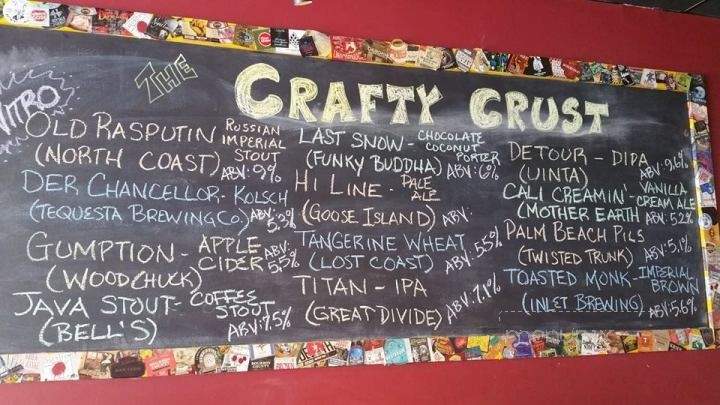 THE
CRAFTY CRUST
NITRO
OLD RASPUTIN RUSSIAN IMPERIAL STOUT
(NORTH COAST) ABV: 9%
DER CHANCELLOR - KOLSCH
(TEQUESTA BREWING CO.) ABV: 5.2%
GUMPTION - APPLE CIDER
(WOODCHUCK) ABV: 5.5%
JAVA STOUT - COFFEE STOUT
(BELL'S) ABV: 7.5%
LAST SNOW - CHOCOLATE COCONUT PORTER
(FUNKY BUDDHA) ABV: 6%
HI LINE - PALE ALE
(GOOSE ISLAND) ABV:
TANGERINE WHEAT
(LOST COAST) ABV: 5.5%
TITAN - IPA
(GREAT DIVIDE) ABV: 7.1%
DETOUR - DIPA
(UINTA) ABV: 9.6%
CALI CREAMIN' - VANILLA CREAM ALE
(MOTHER EARTH ABV: 5.2%
PALM BEACH PILS
(TWISTED TRUNK) ABV: 5.1%
TOASTED MONK - IMPERIAL BROWN
(INLET BREWING) ABV: 5.6%